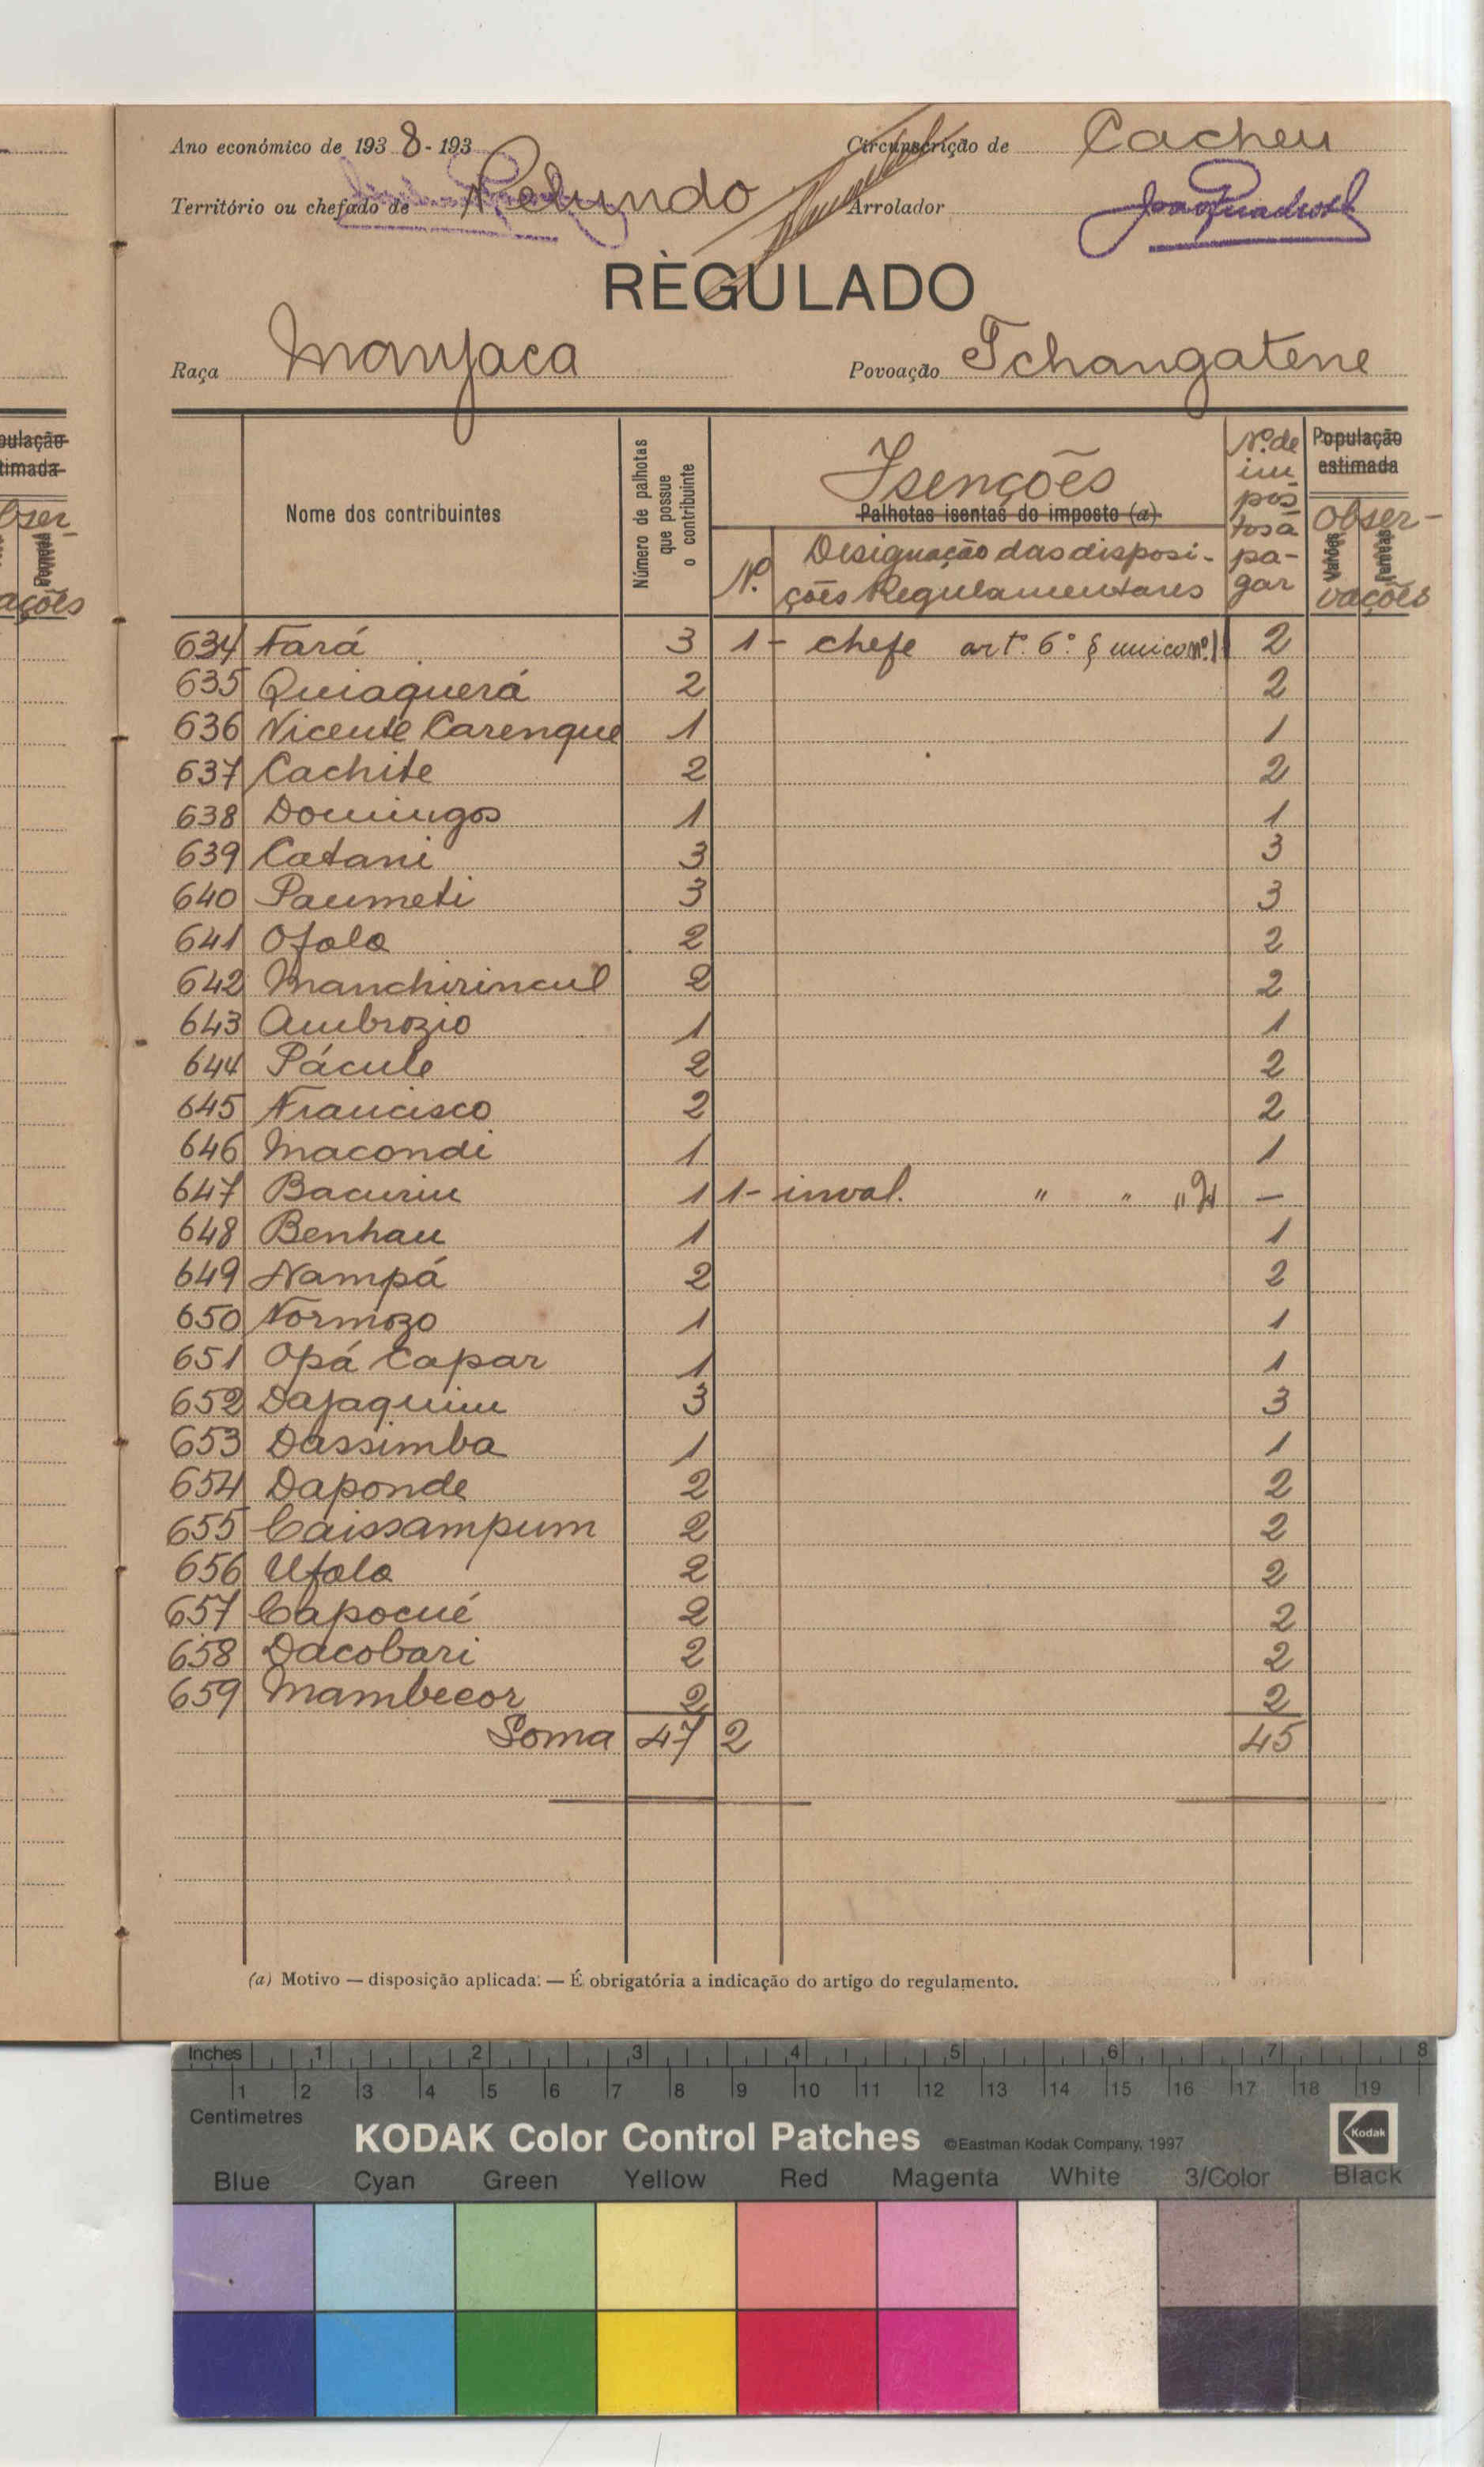 Ano económico de 193 8 - 193
Circunscrição de Cacheu
Território ou chefado de Pelundo
Arrolador
RÈGULADO
Raça Manjaca
Povoação Tchangatene
Nome dos contribuintes
Número de palhotas que possue o contribuinte
Isenções
Palhotas isentas do imposto (a)
Nº
Designação das disposi-
ções Regulamentares
Nº. de
im
pos
tos a
pa-
gar
População
estimada
Obser-
vações
634 Fará 3 1 - chefe artº. 6º. § unico nº. 1 2
635 Quiaguerá 2 2
636 Vicente Carenque 1 1
637 Cachite 2 2
638 Domingos 1 1
639 Catani 3 3
640 Paumeti 3 3
641 Ofolo 2 2
642 Manchirincul 2 2
643 Ambrozio 1 1
644 Pácule 2 2
645 Francisco 2 2
646 Macondi 1 1
647 Bacurim 1 1 - inval. " " " 2 —
648 Benhau 1 1
649 Nampá 2 2
650 Normozo 1 1
651 Opá Capar 1 1
652 Dajaquim 3 3
653 Dassimba 1 1
654 Daponde 2 2
655 Caissampum 2 2
656 Ufolo 2 2
657 Capocué 2 2
658 Dacobari 2 2
659 Mambecor 2 2
Soma 47 2 45
(a) Motivo — disposição aplicada: — É obrigatória a indicação do artigo do regulamento.
pulação
timada
ações
Inches 1 2 3 4 5 6 7 8
1 2 3 4 5 6 7 8 9 10 11 12 13 14 15 16 17 18 19
Centimetres
KODAK Color Control Patches ©Eastman Kodak Company, 1997 Kodak
Blue Cyan Green Yellow Red Magenta White 3/Color Black